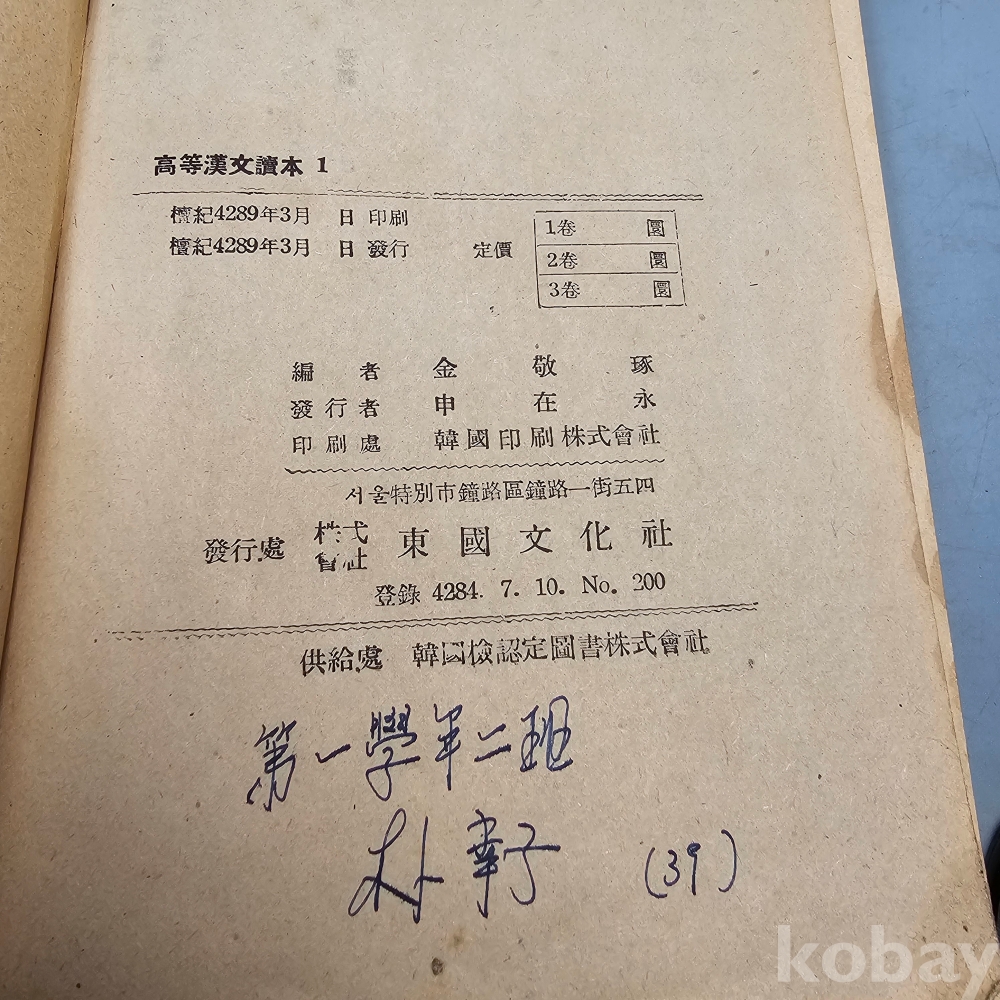 高等漢文讀本 1
檀紀4289年3月 日 印刷
檀紀4289年3月 日 發行 定價
1卷 圜
2卷 圜
3卷 圜
編者 金敬琢
發行者 申在永
印刷處 韓國印刷株式會社
서울特別市鐘路區鐘路一街五四
發行處 株式會社 東國文化社
登錄 4284. 7. 10. No. 200
供給處 韓國檢認定圖書株式會社
第一學年二班
朴幸子 (39)
kobay